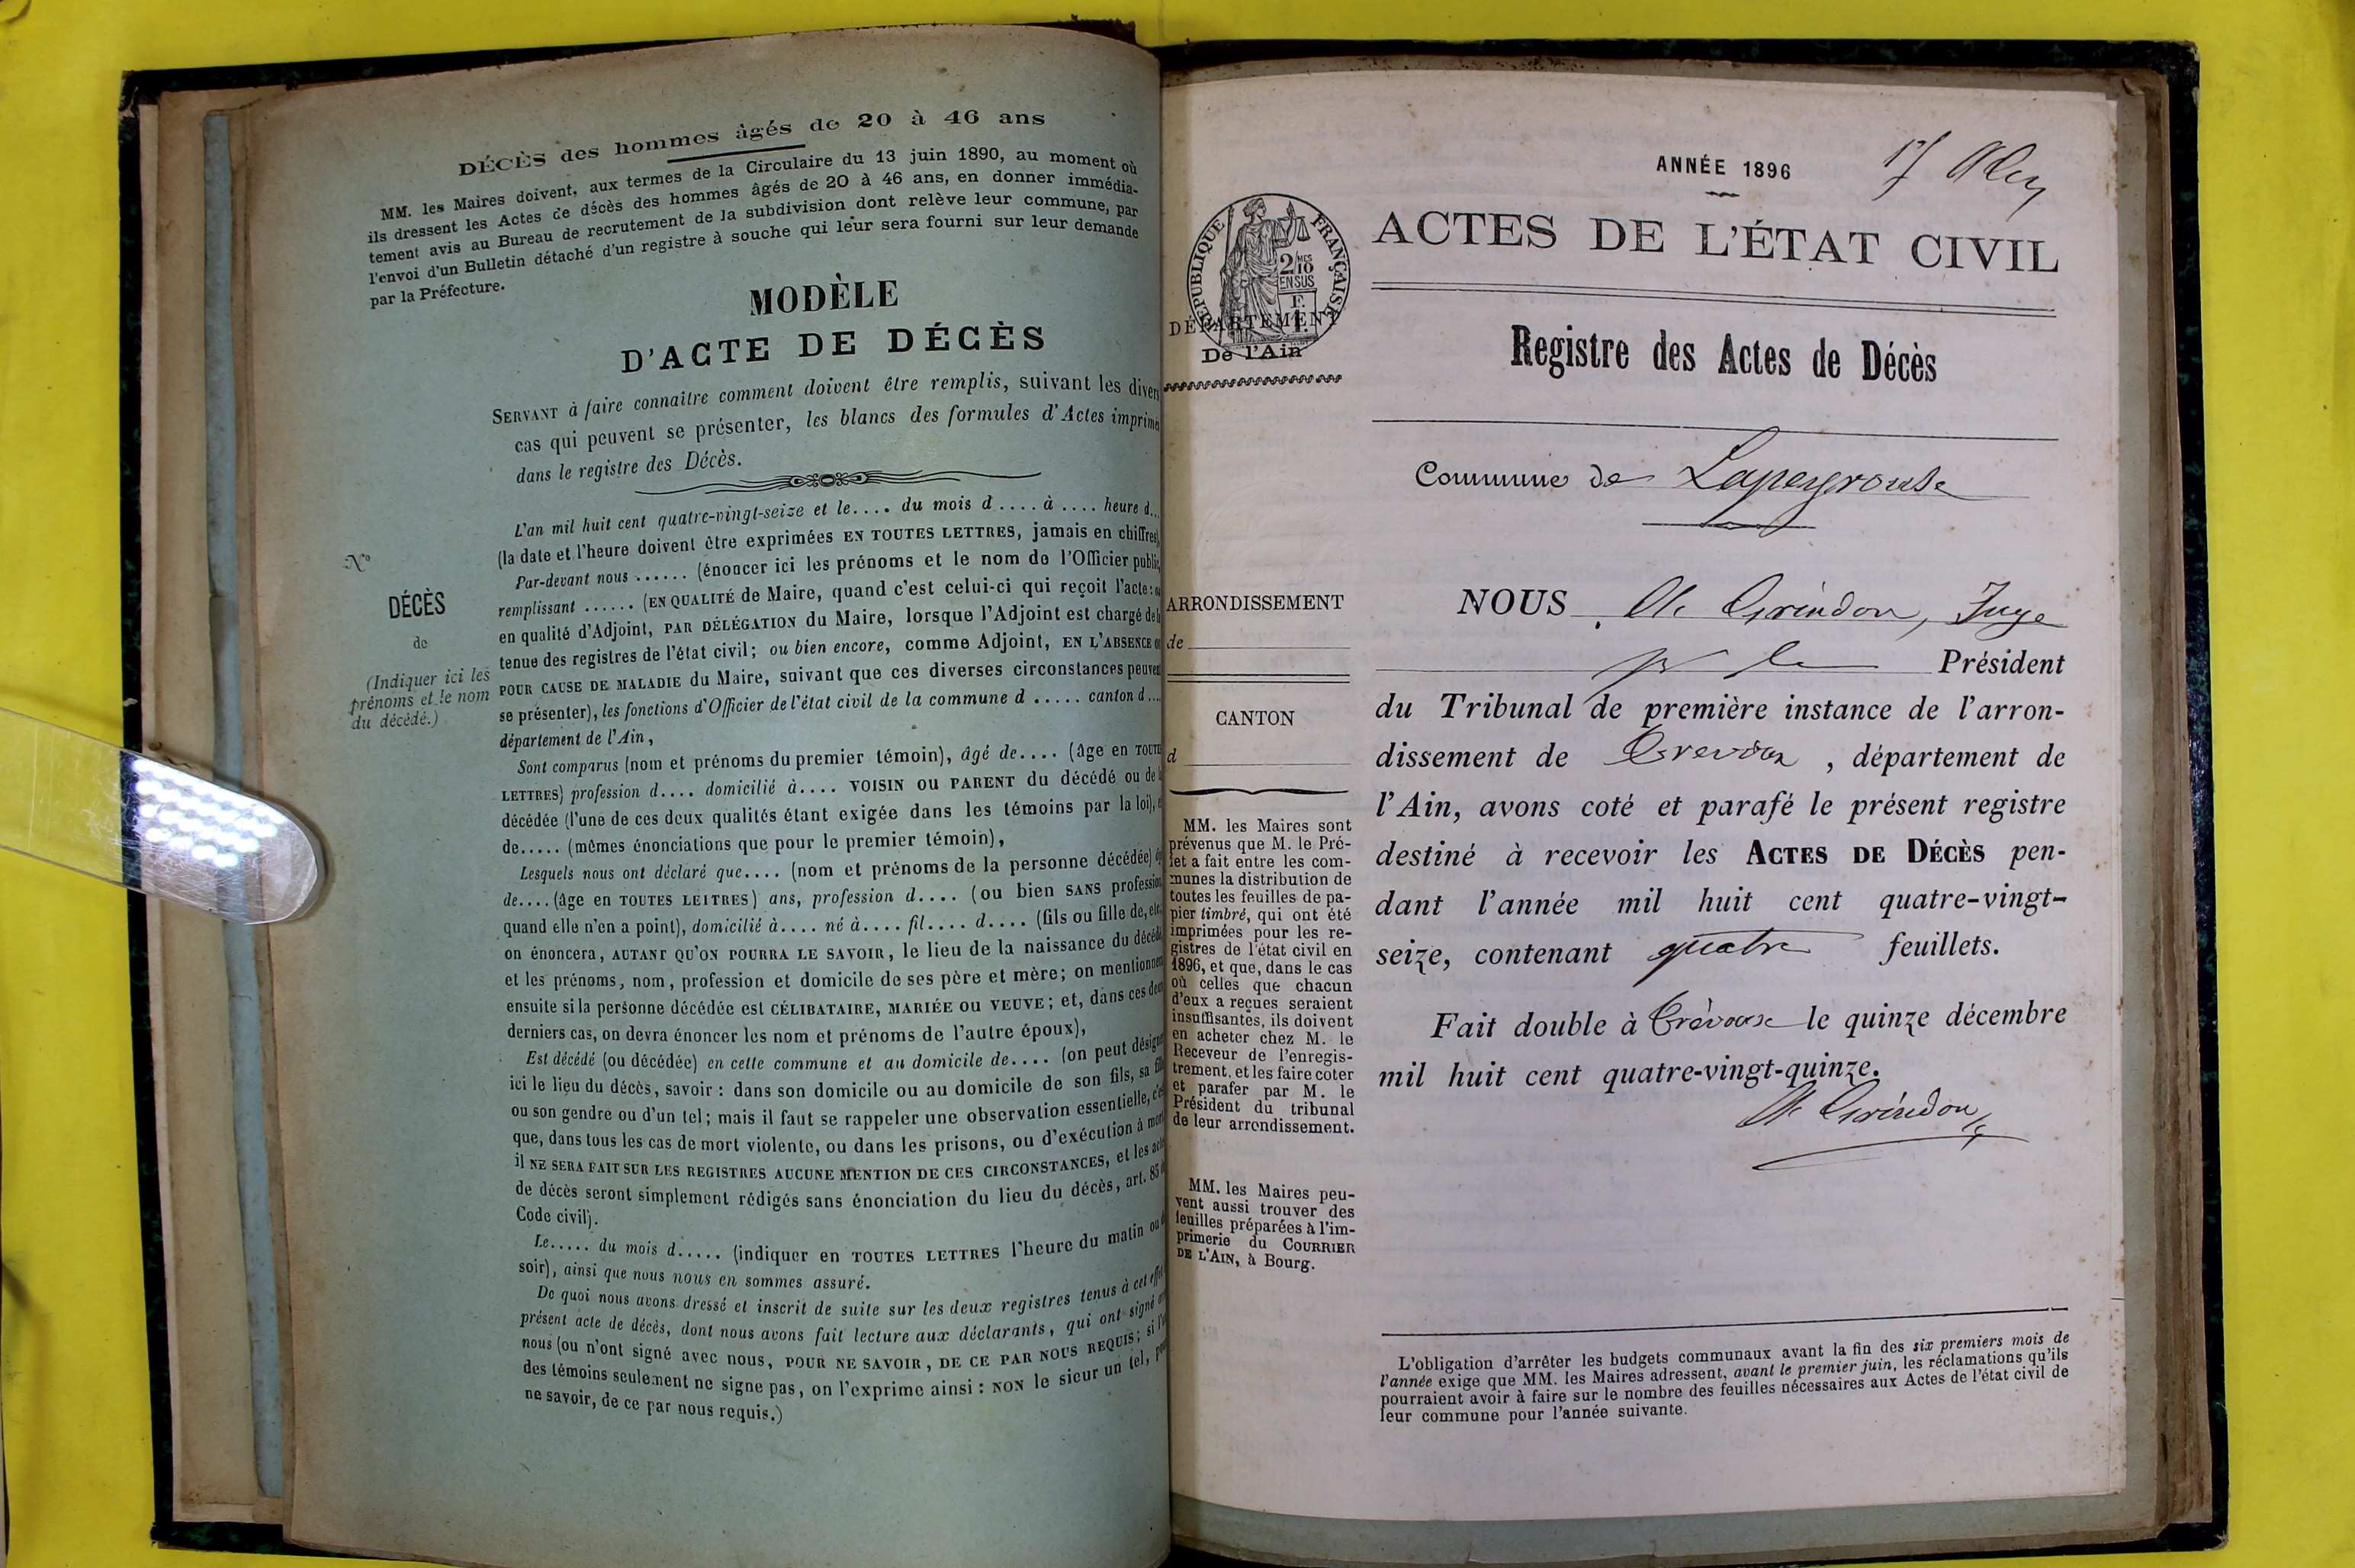 DÉCÈS des hommes âgés de 20 à 46 ans
MM. les Maires doivent, aux termes de la Circulaire du 13 juin 1890, au moment où
ils dressent les Actes de décès des hommes âgés de 20 à 46 ans, en donner immédia-
tement avis au Bureau de recrutement de la subdivision dont relève leur commune, par
l'envoi d'un Bulletin détaché d'un registre à souche qui leur sera fourni sur leur demande
par la Préfecture.
MODÈLE
D'ACTE DE DÉCÈS
SERVANT à faire connaître comment doivent être remplis, suivant les divers
cas qui peuvent se présenter, les blancs des formules d'Actes imprimé
dans le registre des Décès.
N°
DÉCÈS
de
(Indiquer ici les
prénoms et le nom
du décédé.)
L'an mil huit cent quatre-vingt-seize et le.... du mois d .... à .... heure d...
(la date et l'heure doivent être exprimées EN TOUTES LETTRES, jamais en chiffres)
Par-devant nous ...... (énoncer ici les prénoms et le nom de l'Officier public,
remplissant ...... (EN QUALITÉ de Maire, quand c'est celui-ci qui reçoit l'acte:
en qualité d'Adjoint, PAR DÉLÉGATION du Maire, lorsque l'Adjoint est chargé de
tenue des registres de l'état civil; ou bien encore, comme Adjoint, EN L'ABSENCE
POUR CAUSE DE MALADIE du Maire, suivant que ces diverses circonstances peuven
se présenter), les fonctions d'Officier de l'état civil de la commune d ..... canton d ....
département de l'Ain,
Sont comparus (nom et prénoms du premier témoin), âgé de.... (âge en TOUTE
LETTRES) profession d.... domicilié à.... VOISIN OU PARENT du décédé ou de l
décédée (l'une de ces deux qualités étant exigée dans les témoins par la loi),
de..... (mêmes énonciations que pour le premier témoin),
Lesquels nous ont déclaré que.... (nom et prénoms de la personne décédée)
de....(âge en TOUTES LETTRES) ans, profession d.... (ou bien SANS profession
quand elle n'en a point), domicilié à.... né à.... fil.... d.... (fils ou fille de, etc.
on énoncera, AUTANT QU'ON POURRA LE SAVOIR, le lieu de la naissance du décédé
et les prénoms, nom, profession et domicile de ses père et mère; on mentionner
ensuite si la personne décédée est CÉLIBATAIRE, MARIÉE OU VEUVE; et, dans ces deu
derniers cas, on devra énoncer les nom et prénoms de l'autre époux),
Est décédé (ou décédée) en cette commune et au domicile de.... (on peut désigne
ici le lieu du décès, savoir : dans son domicile ou au domicile de son fils, sa fill
ou son gendre ou d'un tel; mais il faut se rappeler une observation essentielle, c'es
que, dans tous les cas de mort violente, ou dans les prisons, ou d'exécution à mort
il NE SERA FAIT SUR LES REGISTRES AUCUNE MENTION DE CES CIRCONSTANCES, et les acte
de décès seront simplement rédigés sans énonciation du lieu du décès, art. 85
Code civil).
Le..... du mois d..... (indiquer en TOUTES LETTRES l'heure du matin ou d
soir), ainsi que nous nous en sommes assuré.
De quoi nous avons dressé et inscrit de suite sur les deux registres tenus à cet effet
présent acte de décès, dont nous avons fait lecture aux déclarants, qui ont signé
nous (ou n'ont signé avec nous, POUR NE SAVOIR, DE CE PAR NOUS REQUIS; si l'u
des témoins seulement ne signe pas, on l'exprime ainsi : NON le sieur un tel, pou
ne savoir, de ce par nous requis.)
ANNÉE 1896
RÉPUBLIQUE FRANÇAISE
2/10
MES
EN SUS
DÉPARTEMENT
De l'Ain
ARRONDISSEMENT
de
CANTON
d
MM. les Maires sont
prévenus que M. le Pré-
fet a fait entre les com-
munes la distribution de
toutes les feuilles de pa-
pier timbré, qui ont été
imprimées pour les re-
gistres de l'état civil en
1896, et que, dans le cas
où celles que chacun
d'eux a reçues seraient
insuffisantes, ils doivent
en acheter chez M. le
Receveur de l'enregis-
trement, et les faire coter
et parafer par M. le
Président du tribunal
de leur arrondissement.
MM. les Maires peu-
vent aussi trouver des
feuilles préparées à l'im-
primerie du COURRIER
DE L'AIN, à Bourg.
ACTES DE L'ÉTAT CIVIL
Registre des Actes de Décès
Commune de Lapeyrouse
NOUS Grindon, Juge
p le Président
du Tribunal de première instance de l'arron-
dissement de Trévoux, département de
l'Ain, avons coté et parafé le présent registre
destiné à recevoir les ACTES DE DÉCÈS pen-
dant l'année mil huit cent quatre-vingt-
seize, contenant quatre feuillets.
Fait double à Trévoux le quinze décembre
mil huit cent quatre-vingt-quinze.
Grindon
L'obligation d'arrêter les budgets communaux avant la fin des six premiers mois de
l'année exige que MM. les Maires adressent, avant le premier juin, les réclamations qu'ils
pourraient avoir à faire sur le nombre des feuilles nécessaires aux Actes de l'état civil de
leur commune pour l'année suivante.